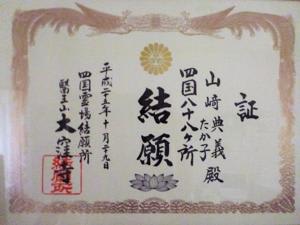 証
山﨑典義
たか子 殿
四国八十八ヶ所
結願
平成二十五年十月二十九日
四国霊場結願所
醫王山 大窪寺